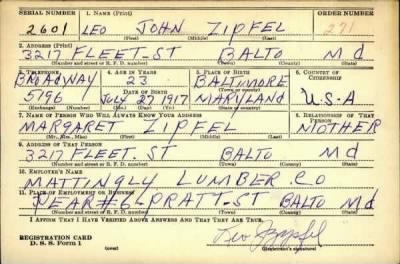 SERIAL NUMBER 1. NAME (Print) ORDER NUMBER
2601 LEO JOHN ZIPFEL 271
(First) (Middle) (Last)
2. ADDRESS (Print)
3217 FLEET-ST BALTO Md
(Number and street or R. F. D. number) (Town) (County) (State)
3. TELEPHONE 4. AGE IN YEARS 5. PLACE OF BIRTH 6. COUNTRY OF CITIZENSHIP
BROADWAY 23 BALTIMORE
DATE OF BIRTH (Town or county)
5796 July 27 1917 MARYLAND U.S.A
(Exchange) (Number) (Mo.) (Day) (Yr.) (State or country)
7. NAME OF PERSON WHO WILL ALWAYS KNOW YOUR ADDRESS 8. RELATIONSHIP OF THAT PERSON
MARGARET ZIPFEL MOTHER
(Mr., Mrs., Miss) (First) (Middle) (Last)
9. ADDRESS OF THAT PERSON
3217 FLEET ST BALTO Md
(Number and street or R. F. D. number) (Town) (County) (State)
10. EMPLOYER'S NAME
MATTINGLY LUMBER CO
11. PLACE OF EMPLOYMENT OR BUSINESS
PEAR#6 PRATT-ST BALTO Md
(Number and street or R. F. D. number) (Town) (County) (State)
I AFFIRM THAT I HAVE VERIFIED ABOVE ANSWERS AND THAT THEY ARE TRUE.
REGISTRATION CARD
D. S. S. Form 1 (over) Leo J Zipfel
(Registrant's signature)